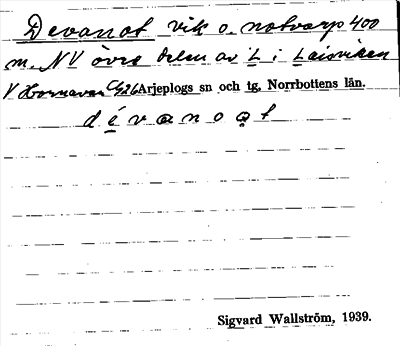 Devanot vik o. notvarp 400
m. NV övre delen av L i Laisviken
V Hornavan C926 Arjeplogs sn och tg, Norrbottens län.
d é v a n o ạ t
Sigvard Wallström, 1939.